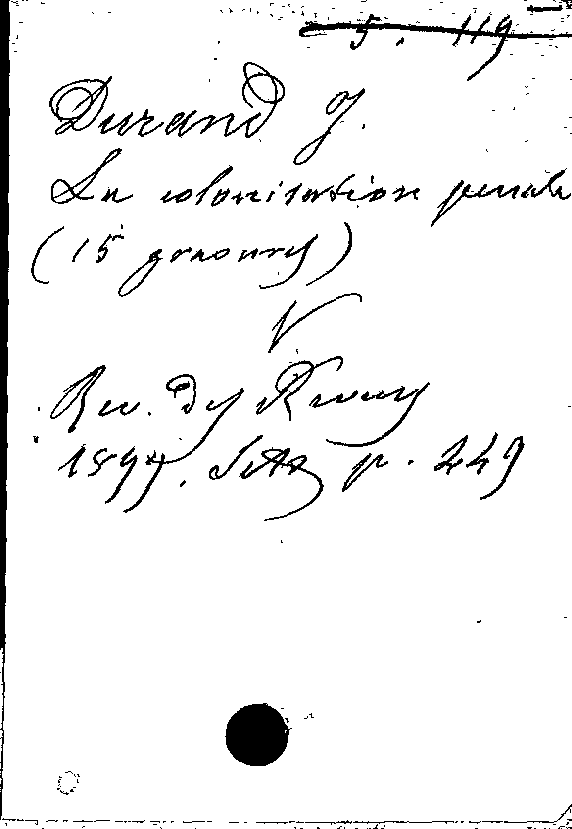 5. 119
Durand J.
La colonisation pénale
(15 gravures)
V
Rev. des Revues
1897. Sett. p. 449